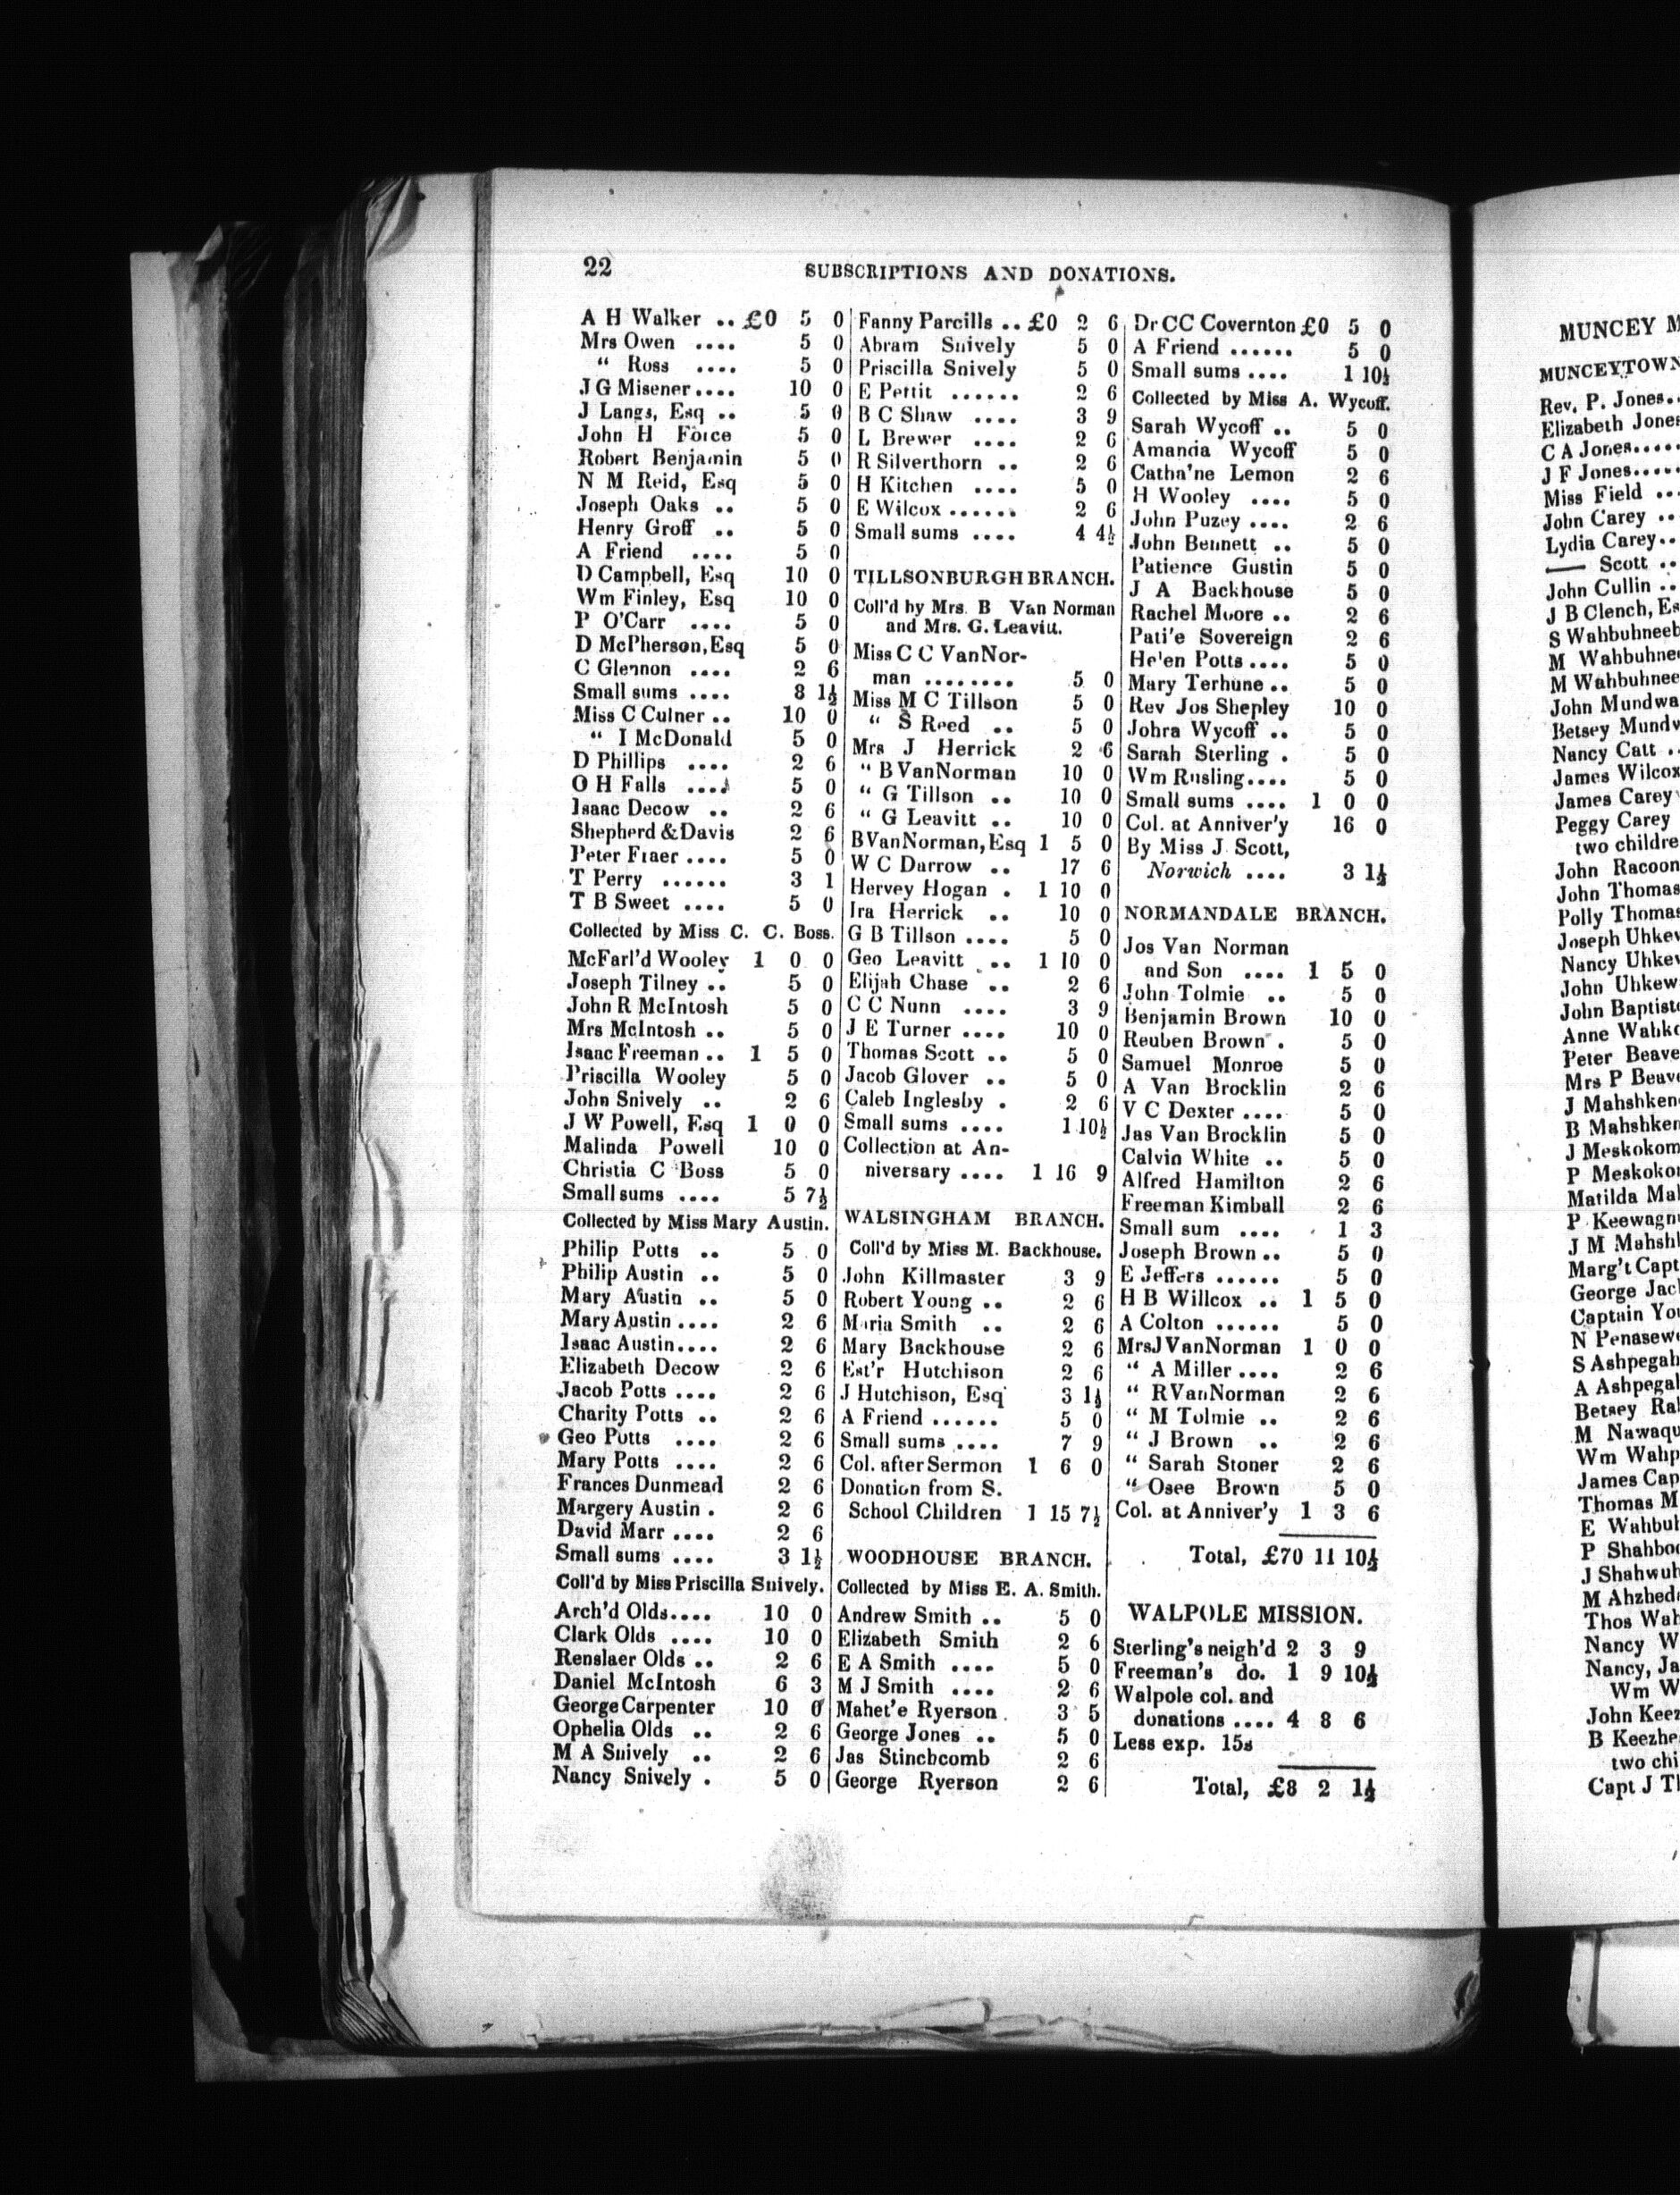 22
SUBSCRIPTIONS AND DONATIONS.
A H Walker .. £0 5 0
Mrs Owen .... 5 0
" Ross .... 5 0
J G Misener.... 10 0
J Langs, Esq .. 5 0
John H Force 5 0
Robert Benjamin 5 0
N M Reid, Esq 5 0
Joseph Oaks .. 5 0
Henry Groff .. 5 0
A Friend .... 5 0
D Campbell, Esq 10 0
Wm Finley, Esq 10 0
P O'Carr .... 5 0
D McPherson, Esq 5 0
C Glennon .... 2 6
Small sums .... 8 1½
Miss C Culner .. 10 0
" I McDonald 5 0
D Phillips .... 2 6
O H Falls .... 5 0
Isaac Decow .. 2 6
Shepherd & Davis 2 6
Peter Fraer .... 5 0
T Perry ...... 3 1
T B Sweet .... 5 0
Collected by Miss C. C. Boss.
McFarl'd Wooley 1 0 0
Joseph Tilney .. 5 0
John R McIntosh 5 0
Mrs McIntosh .. 5 0
Isaac Freeman .. 1 5 0
Priscilla Wooley 5 0
John Snively .. 2 6
J W Powell, Esq 1 0 0
Malinda Powell 10 0
Christia C Boss 5 0
Small sums .... 5 7½
Collected by Miss Mary Austin.
Philip Potts .. 5 0
Philip Austin .. 5 0
Mary Austin .. 5 0
Mary Austin .... 2 6
Isaac Austin.... 2 6
Elizabeth Decow 2 6
Jacob Potts .... 2 6
Charity Potts .. 2 6
Geo Potts .... 2 6
Mary Potts .... 2 6
Frances Dunmead 2 6
Margery Austin . 2 6
David Marr .... 2 6
Small sums .... 3 1½
Coll'd by Miss Priscilla Snively.
Arch'd Olds.... 10 0
Clark Olds .... 10 0
Renslaer Olds .. 2 6
Daniel McIntosh 6 3
George Carpenter 10 0
Ophelia Olds .. 2 6
M A Snively .. 2 6
Nancy Snively . 5 0
Fanny Parcills .. £0 2 6
Abram Snively 5 0
Priscilla Snively 5 0
E Pettit ...... 2 6
B C Shaw .... 3 9
L Brewer .... 2 6
R Silverthorn .. 2 6
H Kitchen .... 5 0
E Wilcox ...... 2 6
Small sums .... 4 4½
TILLSONBURGH BRANCH.
Coll'd by Mrs. B Van Norman
and Mrs. G. Leavitt.
Miss C C VanNor-
man ........ 5 0
Miss M C Tillson 5 0
" S Reed .. 5 0
Mrs J Herrick 2 6
" B VanNorman 10 0
" G Tillson .. 10 0
" G Leavitt .. 10 0
B VanNorman, Esq 1 5 0
W C Darrow .. 17 6
Hervey Hogan . 1 10 0
Ira Herrick .. 10 0
G B Tillson .... 5 0
Geo Leavitt .. 1 10 0
Elijah Chase .. 2 6
C C Nunn .... 3 9
J E Turner .... 10 0
Thomas Scott .. 5 0
Jacob Glover .. 5 0
Caleb Inglesby . 2 6
Small sums .... 1 10½
Collection at An-
niversary .... 1 16 9
WALSINGHAM BRANCH.
Coll'd by Miss M. Backhouse.
John Killmaster 3 9
Robert Young .. 2 6
Maria Smith .. 2 6
Mary Backhouse 2 6
Est'r Hutchison 2 6
J Hutchison, Esq 3 1½
A Friend ...... 5 0
Small sums .... 7 9
Col. after Sermon 1 6 0
Donation from S.
School Children 1 15 7½
WOODHOUSE BRANCH.
Collected by Miss E. A. Smith.
Andrew Smith .. 5 0
Elizabeth Smith 2 6
E A Smith .... 5 0
M J Smith .... 2 6
Mahet'e Ryerson . 3 5
George Jones .. 5 0
Jas Stinchcomb 2 6
George Ryerson 2 6
Dr C C Covernton £0 5 0
A Friend ...... 5 0
Small sums .... 1 10½
Collected by Miss A. Wycoff.
Sarah Wycoff .. 5 0
Amanda Wycoff 5 0
Catha'ne Lemon 2 6
H Wooley .... 5 0
John Puzey .... 2 6
John Bennett .. 5 0
Patience Gustin 5 0
J A Backhouse 5 0
Rachel Moore .. 2 6
Pati'e Sovereign 2 6
Helen Potts .... 5 0
Mary Terhune .. 5 0
Rev Jos Shepley 10 0
Johra Wycoff .. 5 0
Sarah Sterling . 5 0
Wm Rusling.... 5 0
Small sums .... 1 0 0
Col. at Anniver'y 16 0
By Miss J Scott,
Norwich .... 3 1½
NORMANDALE BRANCH.
Jos Van Norman
and Son .... 1 5 0
John Tolmie .. 5 0
Benjamin Brown 10 0
Reuben Brown . 5 0
Samuel Monroe 5 0
A Van Brocklin 2 6
V C Dexter .... 5 0
Jas Van Brocklin 5 0
Calvin White .. 5 0
Alfred Hamilton 2 6
Freeman Kimball 2 6
Small sum .... 1 3
Joseph Brown .. 5 0
E Jeffers ...... 5 0
H B Willcox .. 1 5 0
A Colton ...... 5 0
Mrs J VanNorman 1 0 0
" A Miller .... 2 6
" R VanNorman 2 6
" M Tolmie .. 2 6
" J Brown .. 2 6
" Sarah Stoner 2 6
" Osee Brown 5 0
Col. at Anniver'y 1 3 6
Total, £70 11 10½
WALPOLE MISSION.
Sterling's neigh'd 2 3 9
Freeman's do. 1 9 10½
Walpole col. and
donations .... 4 8 6
Less exp. 15s
Total, £8 2 1½
MUNCEY M
MUNCEYTOWN
Rev. P. Jones..
Elizabeth Jones
C A Jones.....
J F Jones.....
Miss Field ...
John Carey ..
Lydia Carey..
—— Scott ..
John Cullin ..
J B Clench, Es
S Wahbuhneeb
M Wahbuhne
M Wahbuhnee
John Mundwa
Betsey Mundw
Nancy Catt ..
James Wilcox
James Carey
Peggy Carey
two childre
John Racoon
John Thomas
Polly Thomas
Joseph Uhkew
Nancy Uhkew
John Uhkew
John Baptist
Anne Wahk
Peter Beave
Mrs P Beav
J Mahshken
B Mahshken
J Meskokom
P Meskoko
Matilda Mah
P Keewagn
J M Mahshk
Marg't Capt
George Jac
Captain You
N Penasew
S Ashpegah
A Ashpegah
Betsey Ra
M Nawaqu
Wm Wahp
James Cap
Thomas M
E Wahbuh
P Shahboo
J Shahwuh
M Ahzhed
Thos Wah
Nancy W
Nancy, Ja
Wm W
John Keez
B Keezhe
two chi
Capt J T